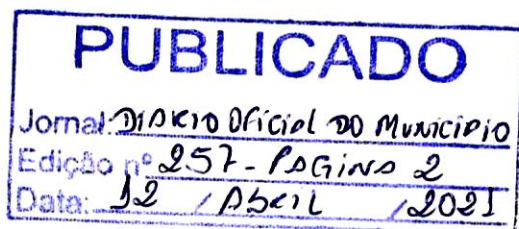 PUBLICADO
Jornal: DIARIO OFICIAL DO MUNICIPIO
Edição nº 257 - PAGINA 2
Data: 12 / ABRIL / 2021